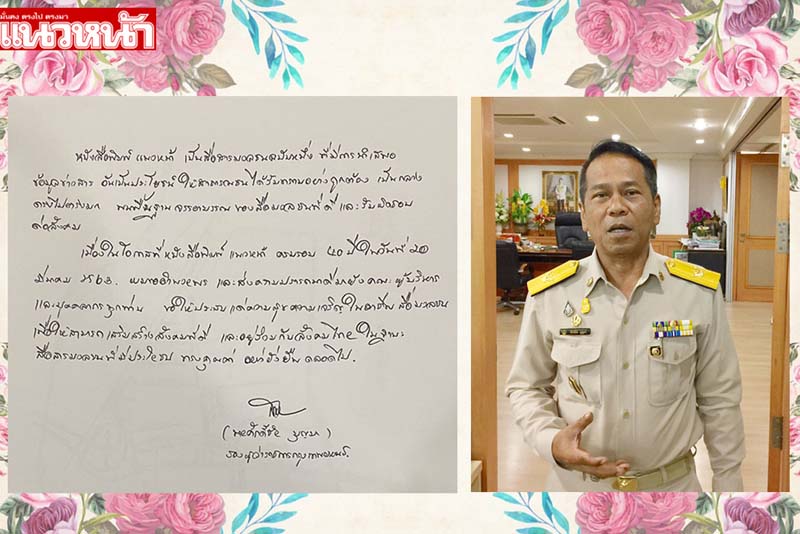 มั่นคง ตรงไป ตรงมา
แนวหน้า
หนังสือพิมพ์ แนวหน้า เป็นสื่อสารมวลชนฉบับหนึ่ง ที่มีการนำเสนอ
ข้อมูลข่าวสาร อันเป็นประโยชน์ ให้สาธารณชนได้รับทราบอย่างถูกต้อง เป็นกลาง
ตรงไปตรงมา บนพื้นฐาน จรรยาบรรณ ของสื่อมวลชนที่ดี และรับผิดชอบ
ต่อสังคม
เนื่องในโอกาสที่หนังสือพิมพ์ แนวหน้า ครบรอบ ๔๐ ปี ในวันที่ ๒๐
มีนาคม ๒๕๖๓ ผมขออำนวยพร และส่งความปรารถนาดีมายังคณะผู้บริหาร
และบุคลากรทุกท่าน ขอให้ประสบแต่ความสุขความเจริญ ในอาชีพ สื่อมวลชน
เพื่อให้สามารถเสริมสร้างสังคมที่ดี และอยู่ร่วมกับสังคมไทย ในฐานะ
สื่อสารมวลชนที่มีประโยชน์ ทรงคุณค่า อย่างยั่งยืน ตลอดไป.
(พลศักดิ์ชัย บุญมา)
รองผู้ว่าราชการกรุงเทพมหานคร